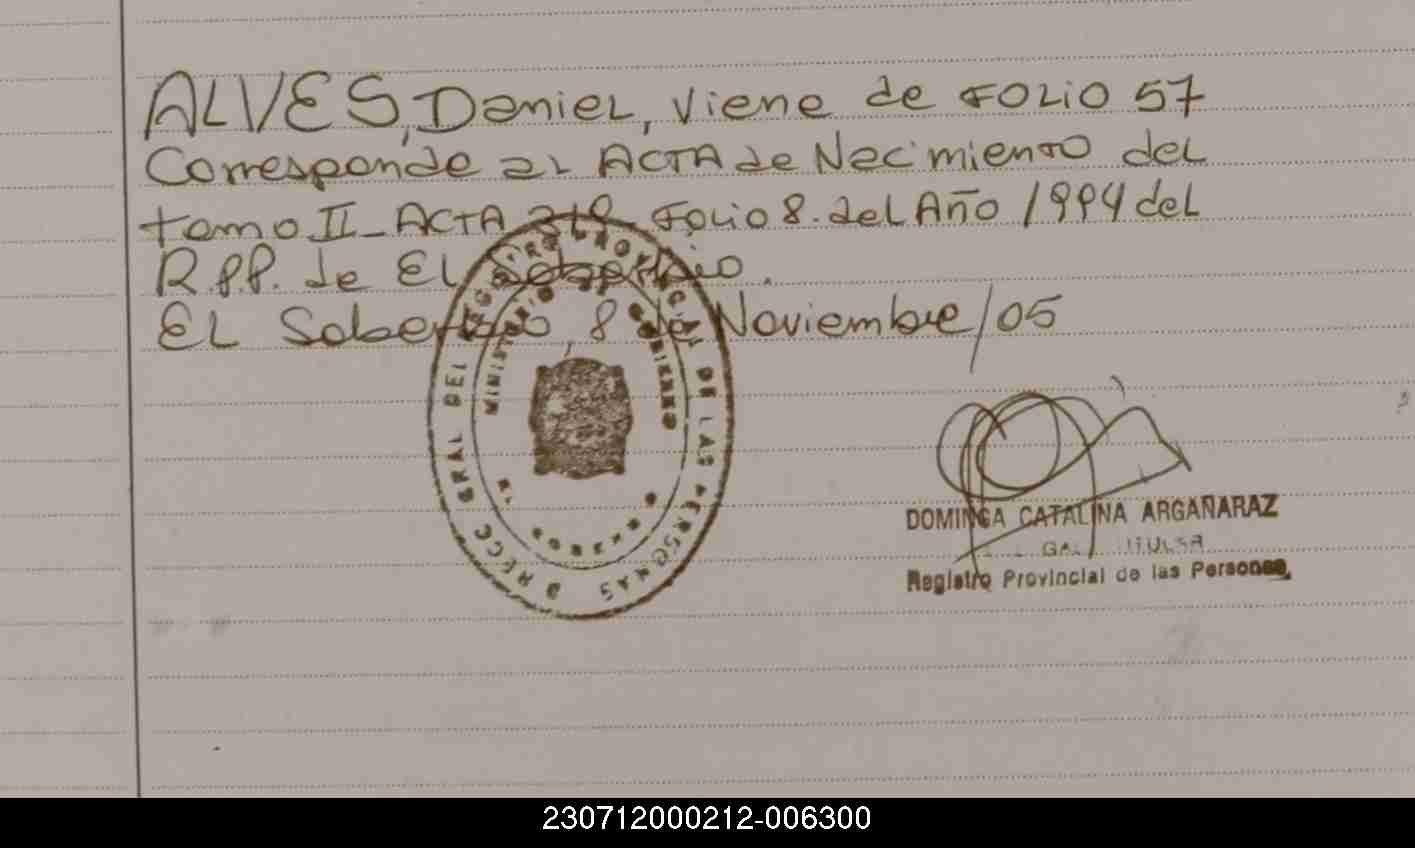 ALVES, Daniel, viene de FOLIO 57
Corresponde al ACTA de Nacimiento del
tomo II_ ACTA Folio 8. del Año 1994 del
R.P.P. de El Soberbio.
EL Soberbio, 8 de Noviembre/05
DIRECC GRAL DEL REGISTRO PROVINCIAL DE LAS PERSONAS
MINISTERIO DE GOBIERNO
DOMINGA CATALINA ARGAÑARAZ
Registro Provincial de las Personas
230712000212-006300